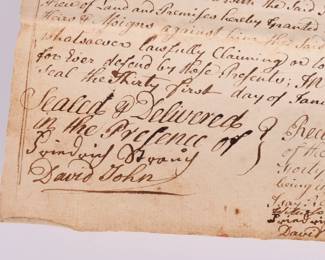 with the Said
Piece of Land and Premises hereby Granted
Heirs & Assigns against him the Said
whatsoever lawfully Claiming or to
for Ever defend by these Presents; In
Seal the Thirty first day of Jan
Sealed & Delivered
in the Presence of
Friedrich Strauch
David John
Rece
of the
forty
being
David